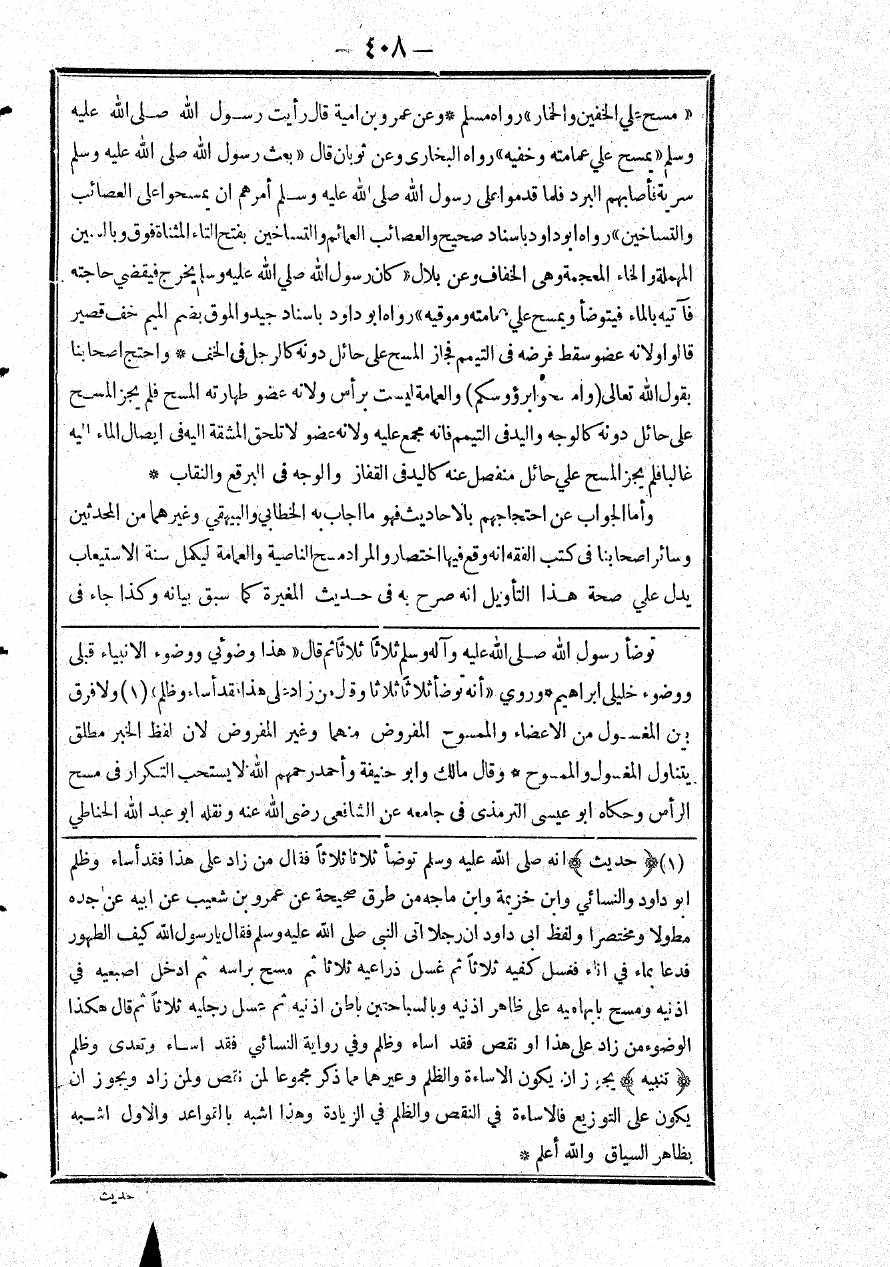 — ٤٠٨ —
« مسح علي الخفين والخمار» رواه مسلم * وعن عمرو بن امية قال رأيت رسول الله صلى الله عليه
وسلم «يمسح علي عمامته وخفيه» رواه البخارى وعن ثوبان قال « بعث رسول الله صلى الله عليه وسلم
سرية فأصابهم البرد فلما قدموا على رسول الله صلى الله عليه وسلم أمرهم ان يمسحوا على العصائب
والتساخين» رواه ابو داود باسناد صحيح والعصائب العمائم والتساخين بفتح التاء المثناة فوق وبالسين
المهملة والخاء المعجمة وهى الخفاف وعن بلال «كان رسول الله صلي الله عليه وسلم يخرج فيقضي حاجته
فآتيه بالماء فيتوضأ ويمسح علي عمامته وموقيه» رواه ابو داود باسناد جيد والموق بضم الميم خف قصير
قالوا ولانه عضو سقط فرضه فى التيمم فجاز المسح على حائل دونه كالرجل فى الخف * واحتج اصحابنا
بقول الله تعالى (وامسحوا برؤوسكم) والعمامة ليست برأس ولانه عضو طهارته المسح فلم يجز المسح
على حائل دونه كالوجه واليد فى التيمم فانه مجمع عليه ولانه عضو لا تلحق المشقة اليه فى ايصال الماء اليه
غالبا فلم يجز المسح علي حائل منفصل عنه كاليد فى القفاز والوجه فى البرقع والنقاب *
وأما الجواب عن احتجاجهم بالاحاديث فهو ما اجاب به الخطابي والبيهقي وغيرهما من المحدثين
وسائر اصحابنا فى كتب الفقه انه وقع فيها اختصار والمراد مسح الناصية والعمامة ليكمل سنة الاستيعاب
يدل علي صحة هذا التأويل انه صرح به فى حديث المغيرة كما سبق بيانه وكذا جاء فى
توضأ رسول الله صلى الله عليه وآله وسلم ثلاثاً ثلاثاً ثم قال « هذا وضوئي ووضوء الانبياء قبلى
ووضوء خليلى ابراهيم * وروي « أنه توضأ ثلاثاً ثلاثا وقال من زاد على هذا فقد أساء وظلم» (١) ولا فرق
بين المغسول من الاعضاء والممسوح المفروض منهما وغير المفروض لان لفظ الخبر مطلق
يتناول المغسول والممسوح * وقال مالك وابو حنيفة وأحمد رحمهم الله لا يستحب التكرار فى مسح
الرأس وحكاه ابو عيسى الترمذى فى جامعه عن الشافعى رضى الله عنه ونقله ابو عبد الله الحناطي
(١) ﴿ حديث ﴾ انه صلى الله عليه وسلم توضأ ثلاثا ثلاثاً فقال من زاد على هذا فقد أساء وظلم
ابو داود والنسائي وابن خزيمة وابن ماجه من طرق صحيحة عن عمرو بن شعيب عن ابيه عن جده
مطولا ومختصرا ولفظ ابى داود ان رجلا اتى النبى صلى الله عليه وسلم فقال يا رسول الله كيف الطهور
فدعا بماء في اناء فغسل كفيه ثلاثاً ثم غسل ذراعيه ثلاثا ثم مسح براسه ثم ادخل اصبعيه في
اذنيه ومسح بابهاميه على ظاهر اذنيه وبالسباحتين باطن اذنيه ثم غسل رجليه ثلاثاً ثم قال هكذا
الوضوء من زاد على هذا او نقص فقد اساء وظلم وفي رواية النسائي فقد اساء وتعدى وظلم
﴿ تنبيه ﴾ يجوز ان يكون الاساءة والظلم وغيرهما مما ذكر مجموعا لمن نقص ولمن زاد ويجوز ان
يكون على التوزيع فالاساءة في النقص والظلم في الزيادة وهذا اشبه بالقواعد والاول اشبه
بظاهر السياق والله أعلم *
حديث